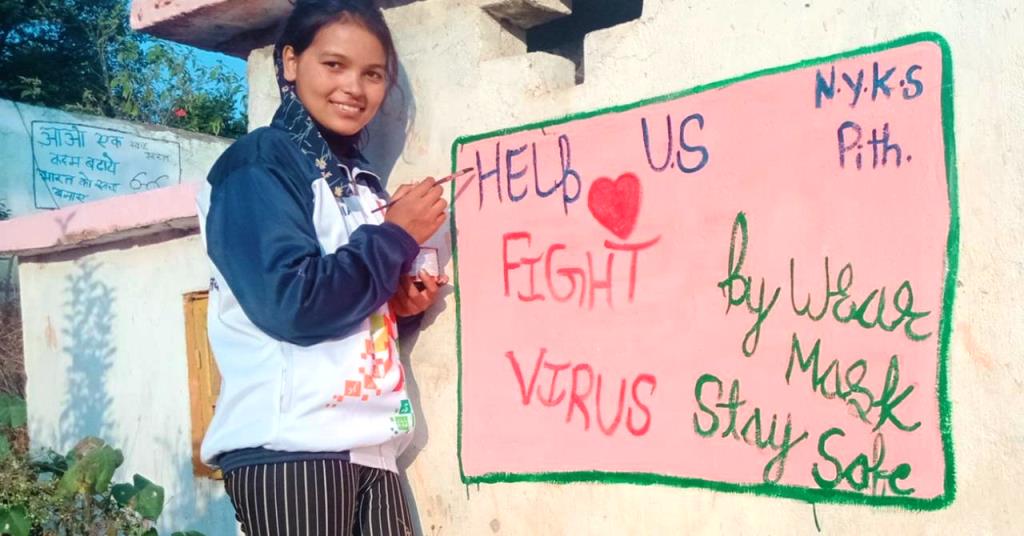 आओ एक
कदम बढ़ाये
भारत को स्वच्छ
बनाए
HELP US
N.Y.K.S
Pith.
FIGHT
VIRUS
by Wear
Mask
Stay Safe